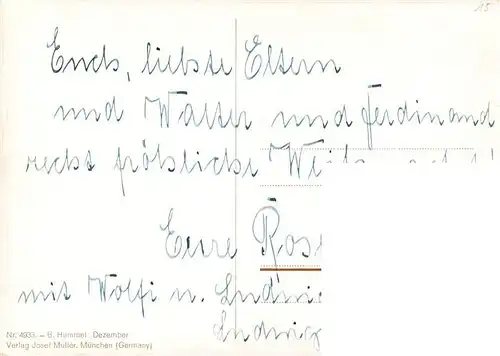 15
Euch, liebste Eltern
und Walter und Ferdinand
recht fröhliche
Eure
mit Wolfi u.
Nr. 4933 – B. Hummel: Dezember
Verlag Josef Müller, München (Germany)